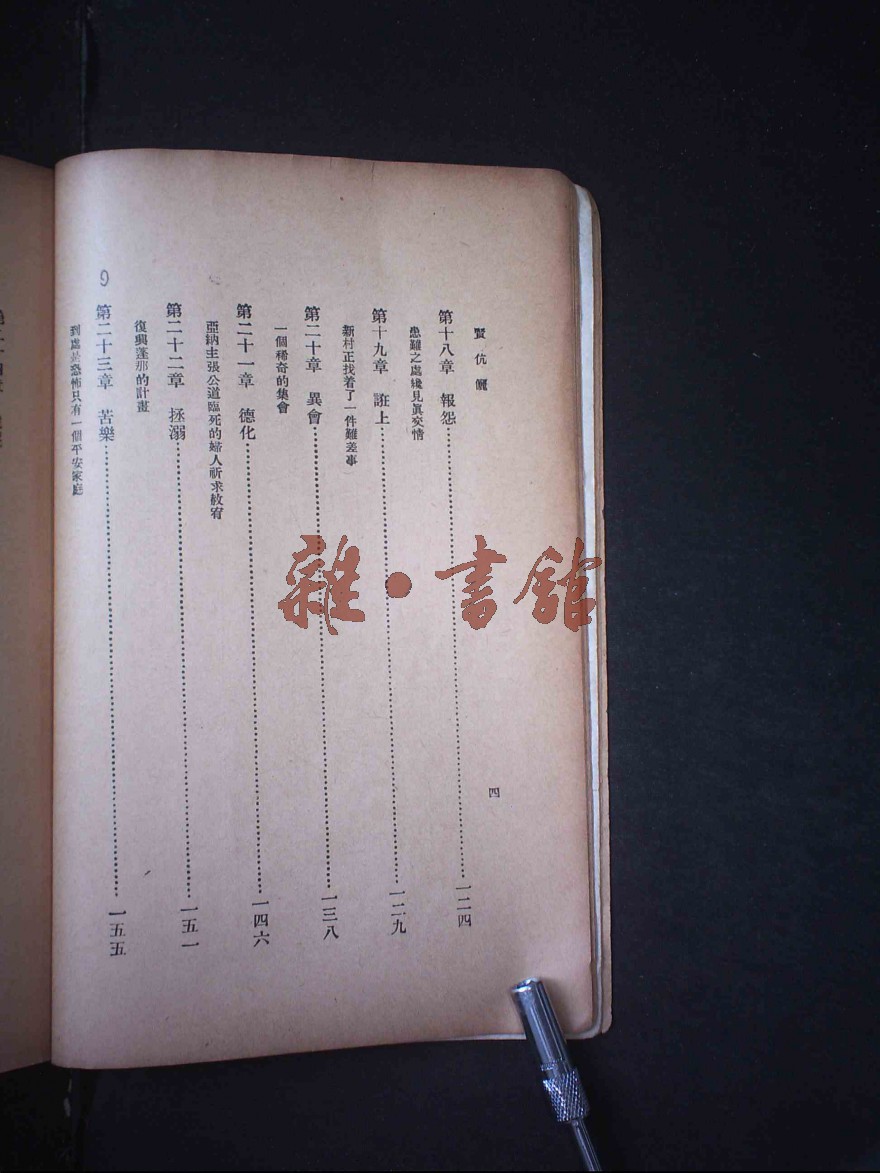 賢伉儷
四
第十八章　報怨……一二四
患難之處纔見眞交情
第十九章　誑上……一二九
新村正找着了一件難差事
第二十章　異會……一三八
一個稀奇的集會
第二十一章　德化……一四六
亞納主張公道臨死的婦人祈求赦宥
第二十二章　拯溺……一五一
復興蓬那的計畫
第二十三章　苦樂……一五五
到處是恐怖只有一個平安家庭
9
雜·書館